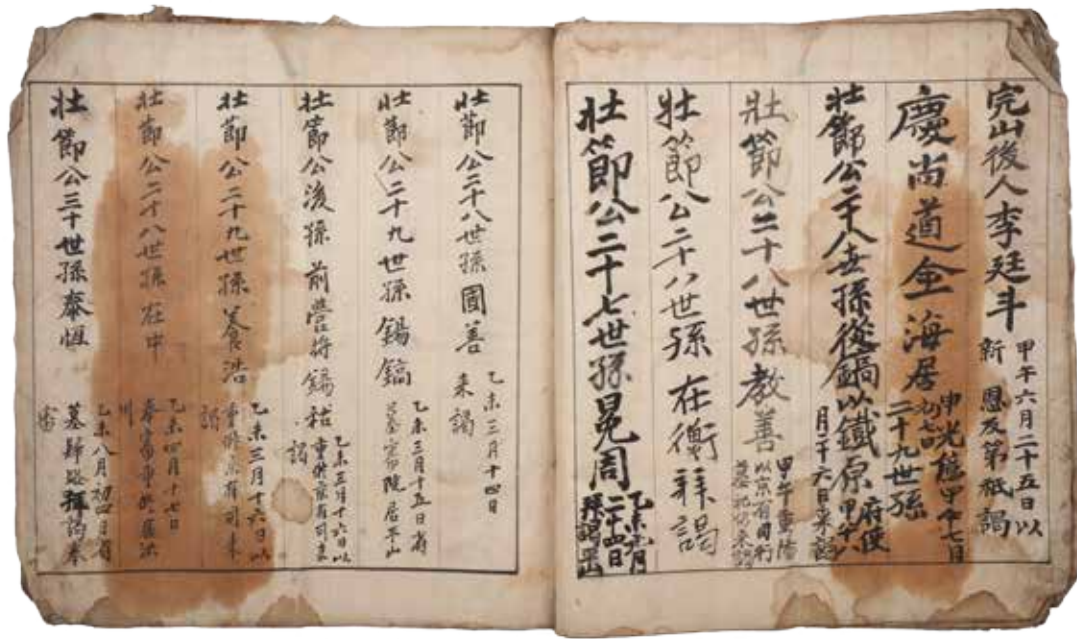 完山後人李廷斗 甲午六月二十五日以
新恩及第祗謁
慶尚道全海居 申光
甲午七月
二十九世孫
壯節公二十八世孫從鍋以鐵原府使
甲午八
月二十六日來謁
壯節公二十八世孫教善 甲午重陽
以宗有司行
墓祀切來謁
壯節公二十八世孫在衡拜謁
壯節公二十七世孫冕周 乙未
二十四日
拜謁
壯節公二十八世孫圄善 乙未三月十四日
來謁
壯節公二十九世孫錫鎬 乙未三月十五日省
墓 院居平山
壯節公後孫前營將錫祜 乙未三月十六日以
重修宗有司來
謁
壯節公二十九世孫養浩 乙未三月十六日以
重修宗有司來
謁
壯節公二十八世孫在中 乙未四月十七日
奉審
居洪
川
壯節公三十世孫泰恒 乙未八月初四日省
墓歸路拜謁奉
審